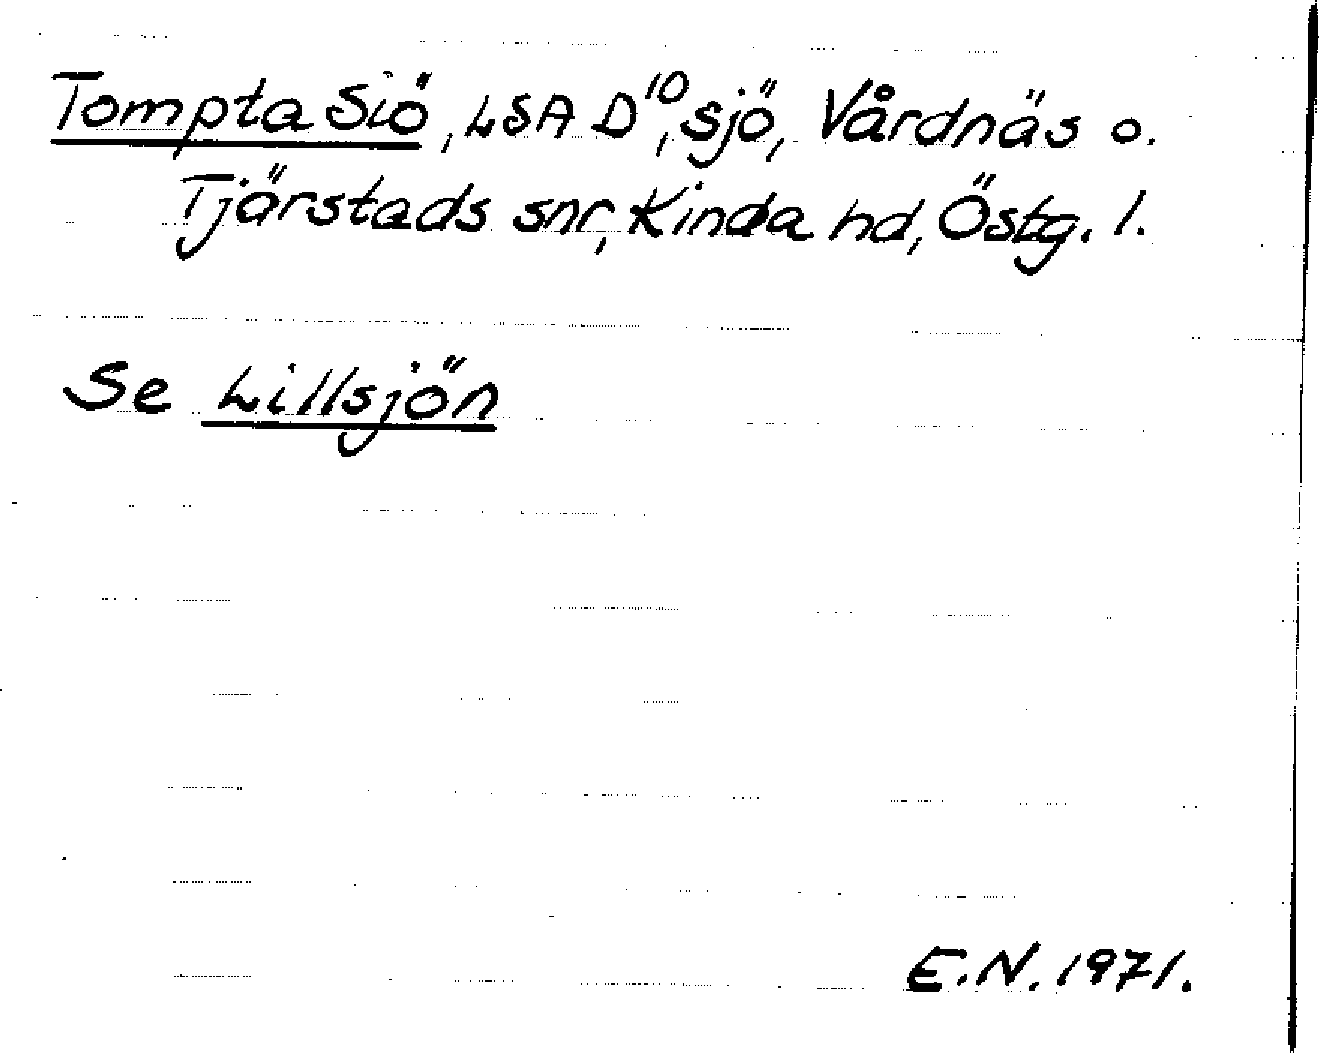 Tompta Siö, LSA D¹⁰, sjö, Vårdnäs o.
Tjärstads snr, Kinda hd, Östg. l.
Se Lillsjön
E.N. 1971.